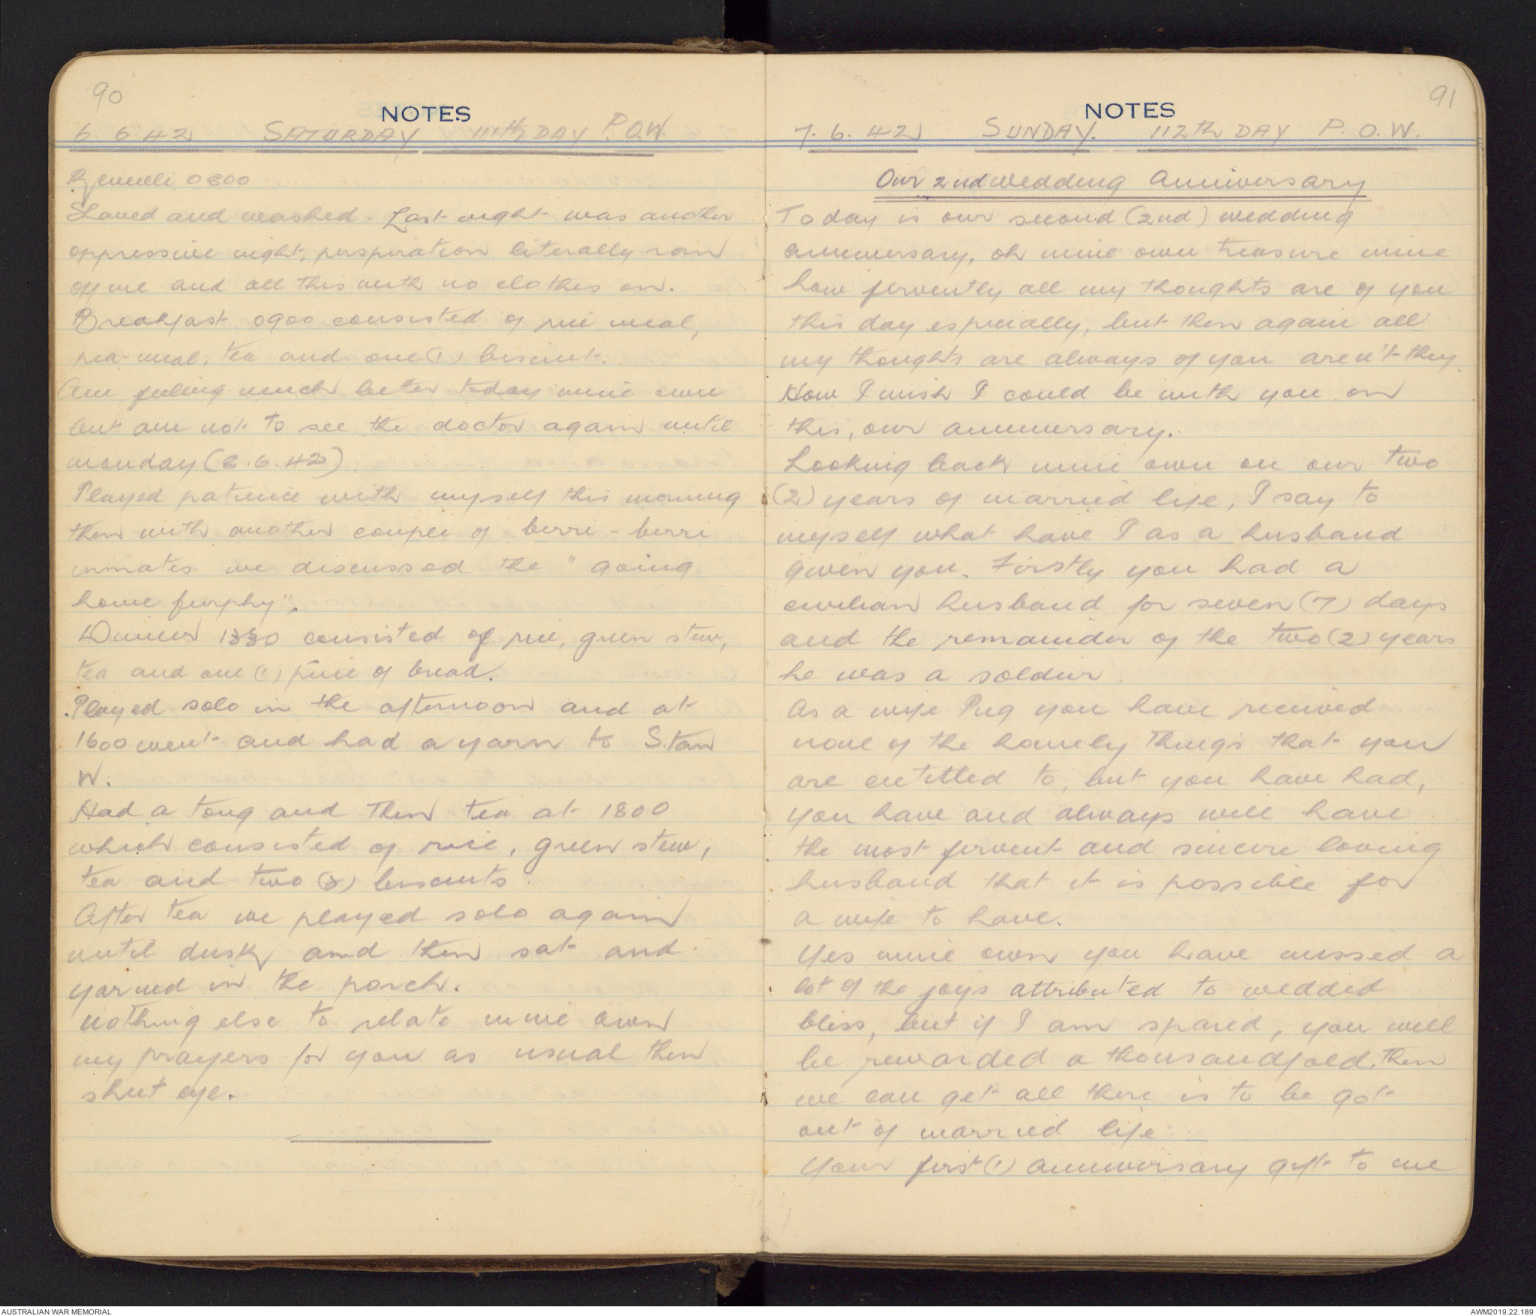 90
NOTES
6. 6. 42 SATURDAY 111th DAY P.O.W.
Reveille 0800
Shaved and washed. Last night was another
oppressive night, perspiration literally ran
off me and all this with no clothes on.
Breakfast 0900 consisted of rice meal,
pea-meal, tea and one (1) biscuit.
Am feeling much better today mine own
but am not to see the doctor again until
monday (8.6.42)
Played patience with myself this morning
then with another couple of berri-berri
inmates we discussed the "going
home furphy".
Dinner 1330 consisted of rice, green stew,
tea and one (1) piece of bread.
Played solo in the afternoon and at
1600 went and had a yarn to Stan
W.
Had a tong and then tea at 1800
which consisted of rice, green stew,
tea and two (2) biscuits.
After tea we played solo again
until dusk and then sat and
yarned in the porch.
Nothing else to relate mine own
my prayers for you as usual then
shut eye.
91
NOTES
7. 6. 42 SUNDAY. 112th DAY P.O.W.
Our 2nd wedding anniversary
Today is our second (2nd) wedding
anniversary, oh mine own treasure mine
how fervently all my thoughts are of you
this day especially, but then again all
my thoughts are always of you aren't they.
How I wish I could be with you on
this, our anniversary.
Looking back mine own on our two
(2) years of married life, I say to
myself what have I as a husband
given you. Firstly you had a
civilian husband for seven (7) days
and the remainder of the two (2) years
he was a soldier.
As a wife Peg you have received
none of the homely things that you
are entitled to, but you have had,
you have and always will have
the most fervent and sincere loving
husband that it is possible for
a wife to have.
Yes mine own you have missed a
lot of the joys attributed to wedded
bliss, but if I am spared, you will
be rewarded a thousandfold, then
we can get all there is to be got
out of married life
Your first (1) anniversary gift to me
AUSTRALIAN WAR MEMORIAL
AWM2019.22.189